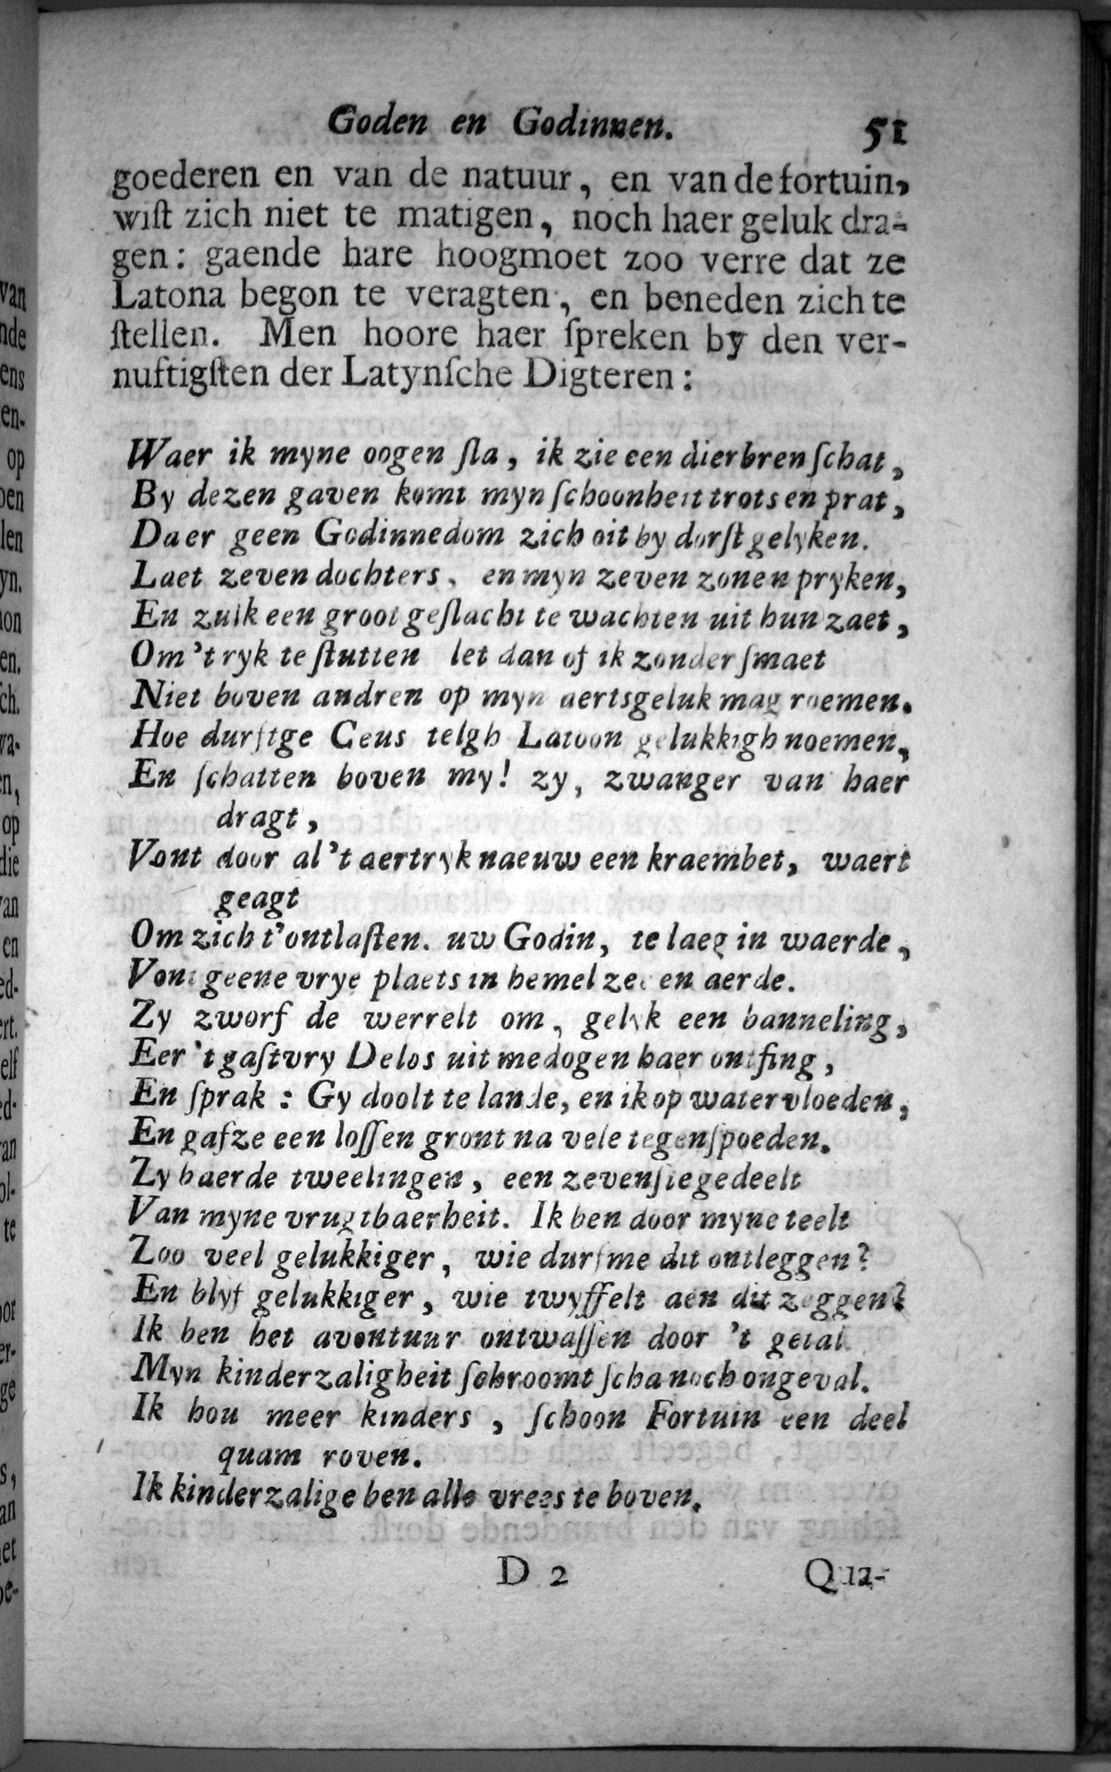 Goden en Godinnen. 51
goederen en van de natuur, en van de fortuin,
wiſt zich niet te matigen, noch haer geluk dra-
gen: gaende hare hoogmoet zoo verre dat ze
Latona begon te veragten, en beneden zich te
ſtellen. Men hoore haer ſpreken by den ver-
nuftigſten der Latynſche Digteren:
Waer ik myne oogen ſla, ik zie een dierbren ſchat,
By dezen gaven komt myn ſchoonheit trots en prat,
Daer geen Godinnedom zich oit by dorſt gelyken.
Laet zeven dochters, en myn zeven zonen pryken,
En zulk een groot geſlacht te wachten uit hun zaet,
Om 't ryk te ſtutten let dan of ik zonder ſmaet
Niet boven andren op myn aertsgeluk mag roemen.
Hoe durftge Ceus telgh Latoon gelukkigh noemen,
En ſchatten boven my! zy, zwanger van haer
dragt,
Vont door al 't aertryk naeuw een kraembet, waert
geagt
Om zich t'ontlaſten. uw Godin, te laeg in waerde,
Vont geene vrye plaets in hemel zee en aerde.
Zy zworf de werrelt om, gelyk een banneling,
Eer 't gaſtvry Delos uit medogen haer ontfing,
En ſprak: Gy doolt te lande, en ik op watervloeden,
En gafze een loſſen gront na vele tegenſpoeden.
Zy baerde tweelingen, een zevenſte gedeelt
Van myne vrugtbaerheit. Ik ben door myne teelt
Zoo veel gelukkiger, wie durfme dit ontleggen?
En blyf gelukkiger, wie twyffelt aen dit zeggen?
Ik ben het avontuur ontwaſſen door 't getal.
Myn kinderzaligheit ſchroomt ſcha noch ongeval.
Ik hou meer kinders, ſchoon Fortuin een deel
quam roven.
Ik kinderzalige ben alle vrees te boven.
D 2 Qua-